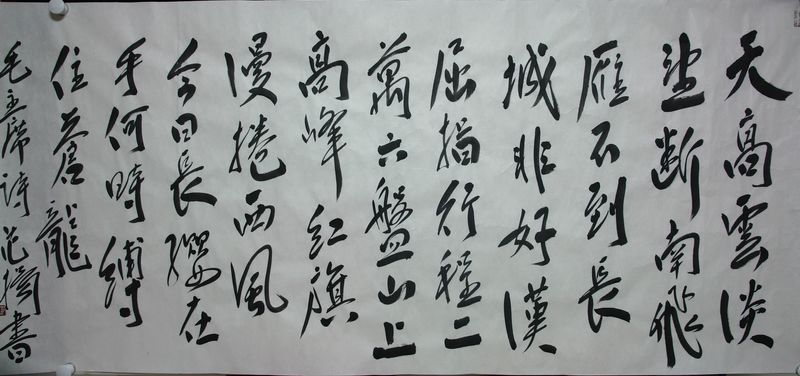 天高雲淡
望斷南飛
雁不到長
城非好漢
屈指行程二
萬六盤山上
高峰紅旗
漫捲西風
今日長纓在
手何時縛
住蒼龍
毛主席詩范書